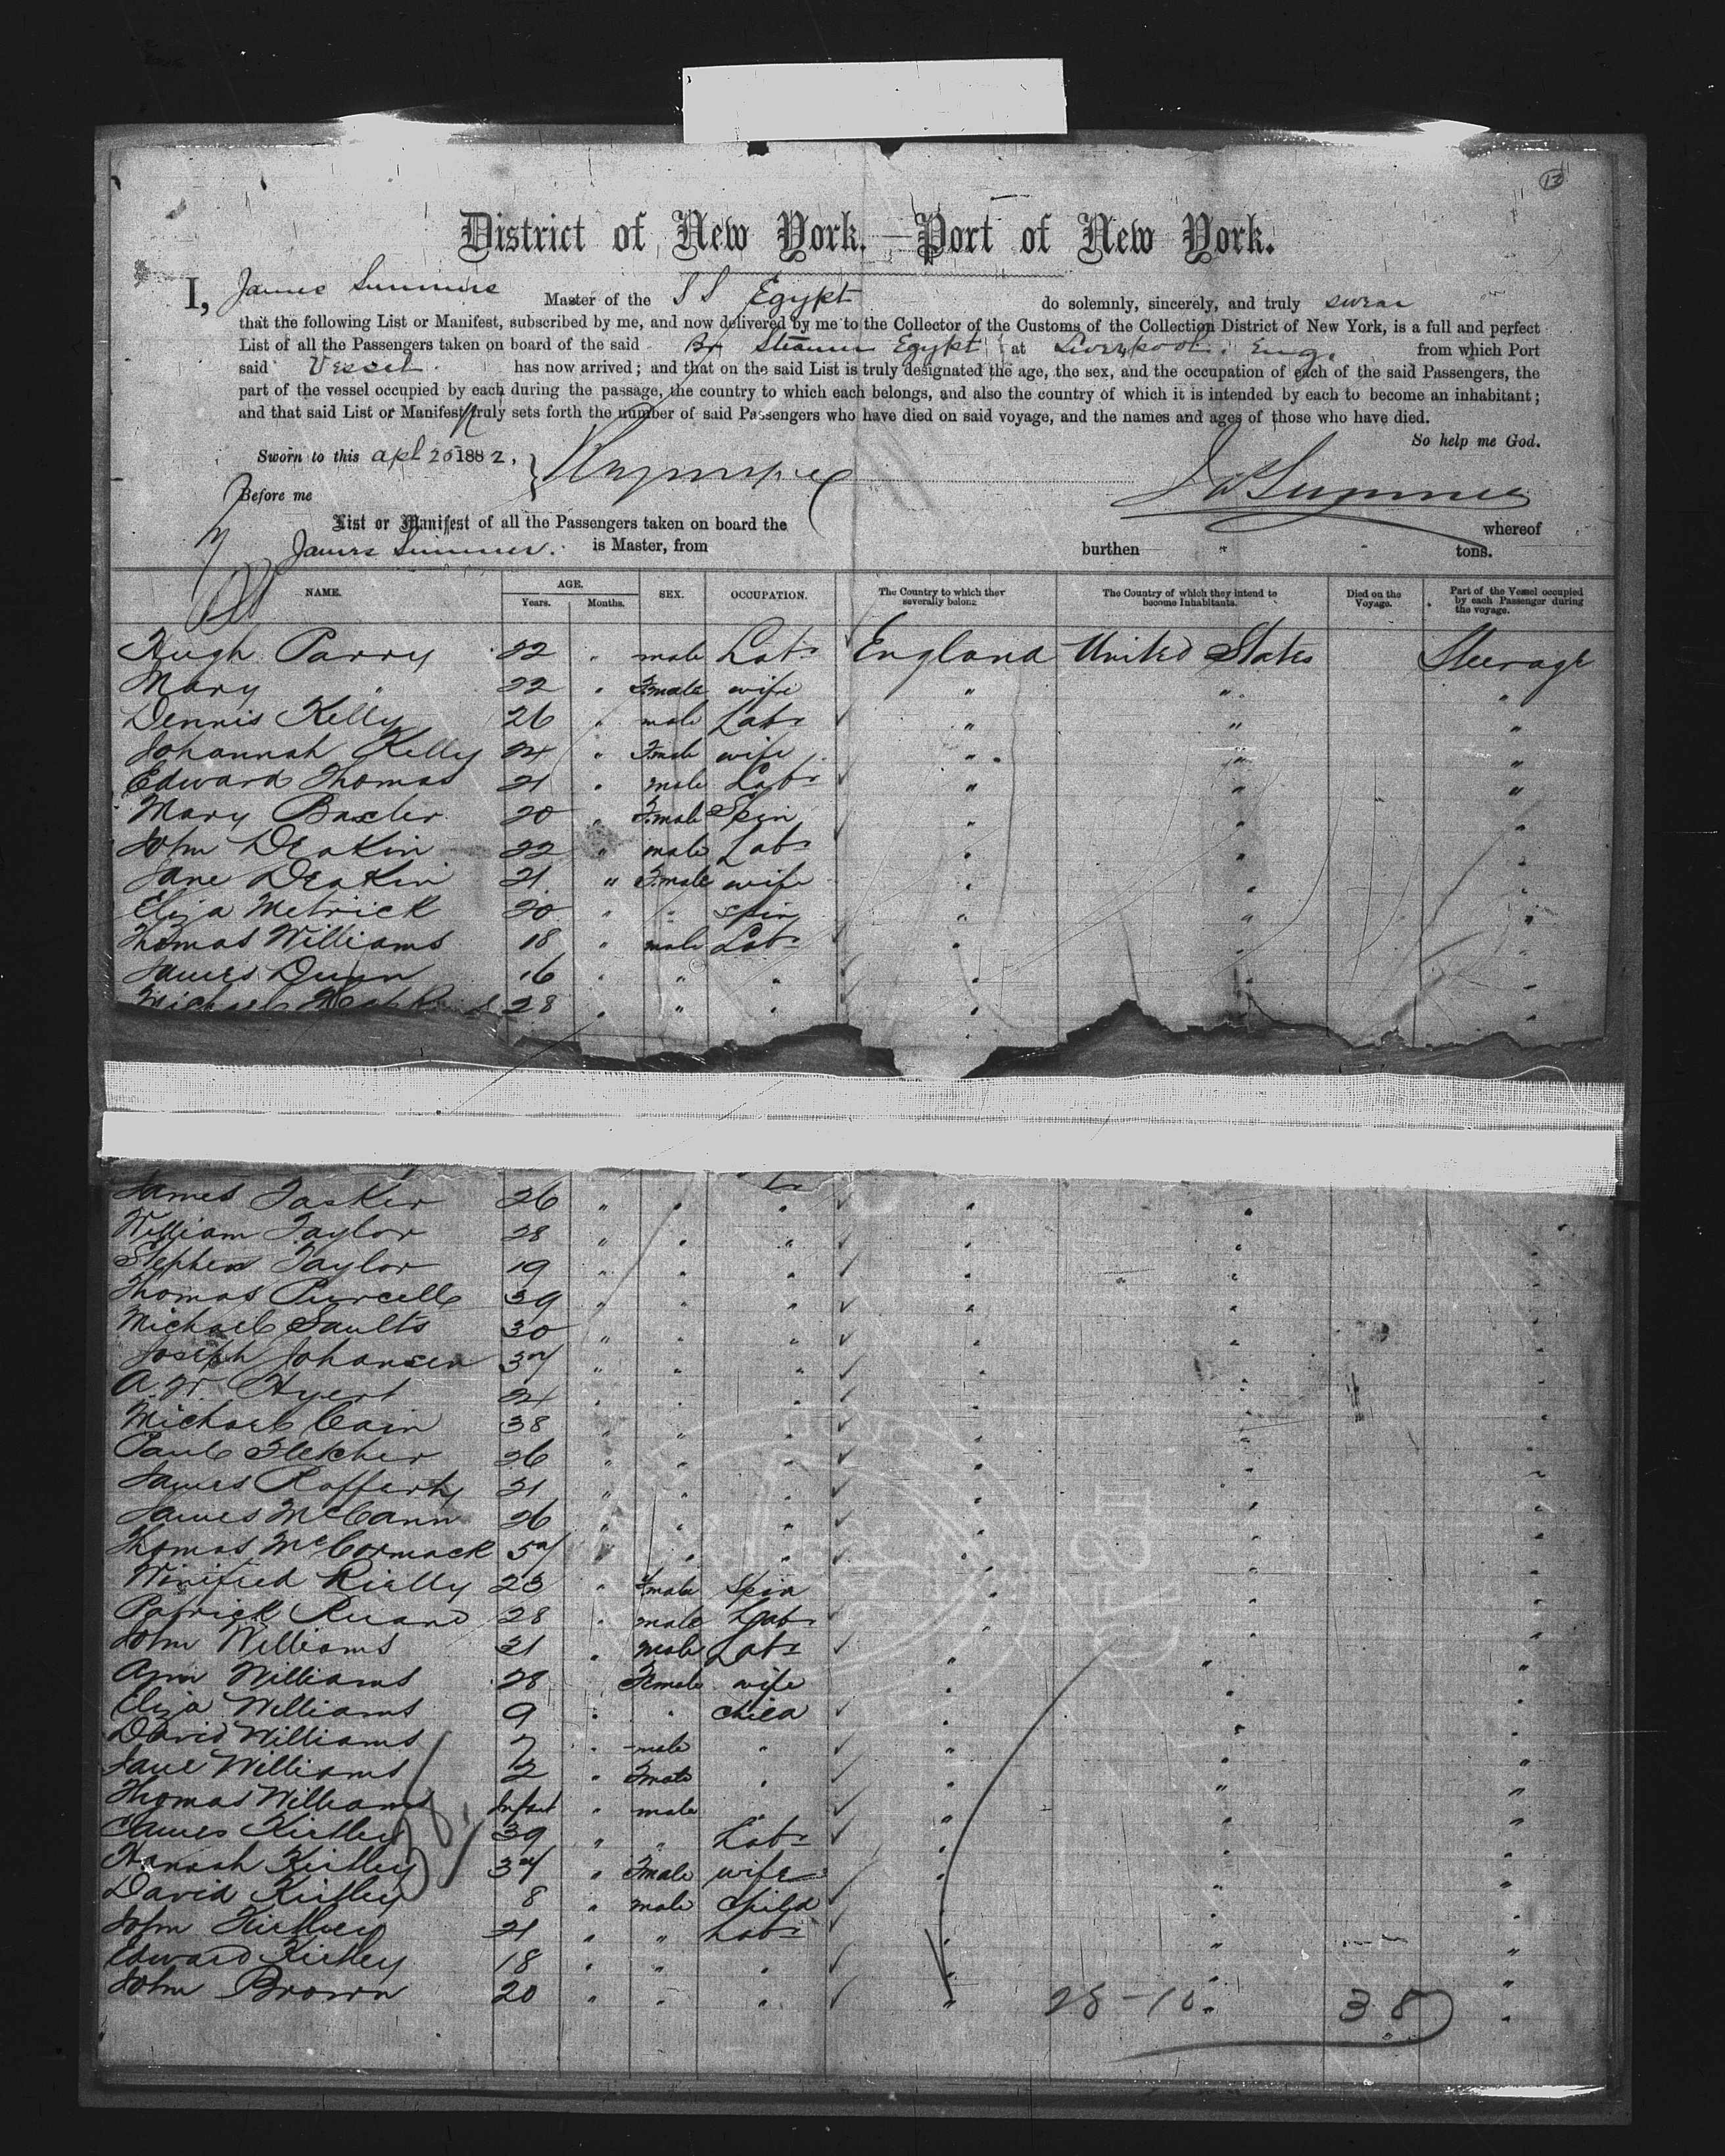 13
District of New York.—Port of New York.
I, James Summers Master of the S S Egypt do solemnly, sincerely, and truly swear
that the following List or Manifest, subscribed by me, and now delivered by me to the Collector of the Customs of the Collection District of New York, is a full and perfect
List of all the Passengers taken on board of the said Br Steamer Egypt at Liverpool, Eng. from which Port
said Vessel. has now arrived; and that on the said List is truly designated the age, the sex, and the occupation of each of the said Passengers, the
part of the vessel occupied by each during the passage, the country to which each belongs, and also the country of which it is intended by each to become an inhabitant;
and that said List or Manifest truly sets forth the number of said Passengers who have died on said voyage, and the names and ages of those who have died.
So help me God.
Sworn to this apl 25 1882,
Jas Summers
Before me
List or Manifest of all the Passengers taken on board the whereof
James Summers. is Master, from burthen " tons.
NAME. AGE. Years. Months. SEX. OCCUPATION. The Country to which they severally belong The Country of which they intend to become Inhabitants. Died on the Voyage. Part of the Vessel occupied by each Passenger during the voyage.
Hugh Parry 22 " male Labr England United States Steerage
Mary " 22 " Female wife " " "
Dennis Kelly 26 " male Labr " " "
Johannah Kelly 24 " Female wife " " "
Edward Thomas 21 " male Labr " " "
Mary Baxter 20 " Female Spin " " "
John Deakin 22 " male Labr " " "
Jane Deakin 21 " Female wife " " "
Eliza Metrick 20 " " spin " " "
Thomas Williams 18 " male Labr " " "
James Dunn 16 " " " " " "
Michael 28 " " " " " "
James Tasker 26 " " " " " "
William Taylor 28 " " " " " "
Stephen Taylor 19 " " " " " "
Thomas Purcell 39 " " " " " "
Michael Saults 30 " " " " " "
Joseph Johansen 37 " " " " " "
A. W. Hyert 24 " " " " " "
Michael Cain 38 " " " " " "
Paul Fletcher 26 " " " " " "
James Rafferty 21 " " " " " "
James McCann 26 " " " " " "
Thomas McCormack 57 " " " " " "
Winifred Rielly 23 " Female Spin " " "
Patrick Ruane 28 " male Labr " " "
John Williams 31 " male Labr " " "
Ann Williams 28 Female wife " " "
Eliza Williams 9 " " child " " "
David Williams 7 " male " " " "
Jane Williams 2 " Female " " " "
Thomas Williams Infant " male " " " "
James Kirtley 39 " " Labr " " "
Hannah Kirtley 34 " Female wife " " "
David Kirtley 8 " male child " " "
John Kirtley 21 " " Labr " " "
Edward Kirtley 18 " " " " " "
John Brown 20 " " " " " "
28-10. 38